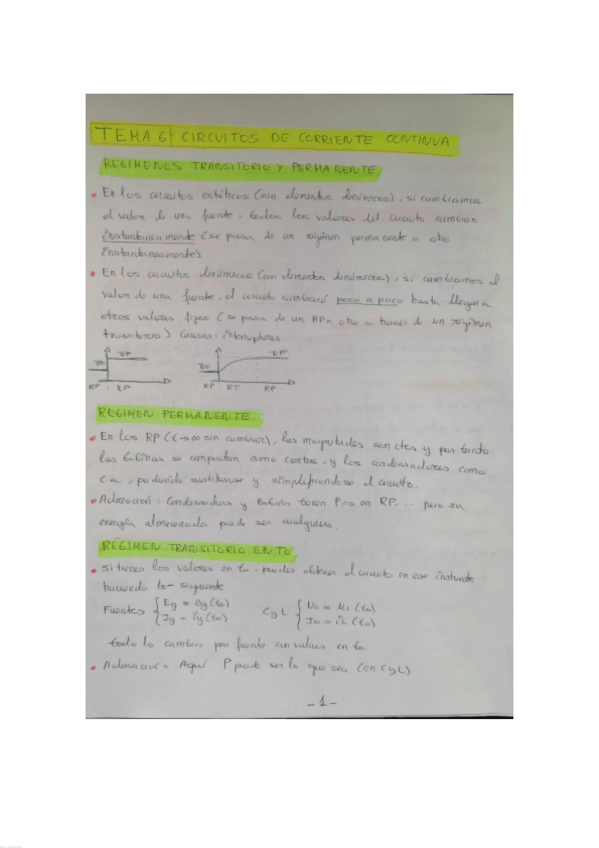 TEMA 6 CIRCUITOS DE CORRIENTE CONTINUA
REGIMENES TRANSITORIO Y PERMANENTE
• En los circuitos estáticos (sin elementos dinámicos), si cambiamos
el valor de una fuente, todos los valores del circuito cambian
instantáneamente (se pasa de un régimen permanente a otro
instantáneamente)
• En los circuitos dinámicos (con elementos dinámicos), si cambiamos el
valor de una fuente, el circuito cambiará poco a poco hasta llegar a
otros valores fijos (se pasa de un RP a otro a través de un régimen
transitorio). Causas: interruptores.
RP RP RP RT RP
REGIMEN PERMANENTE
• En los RP (t→∞ sin cambiar), las magnitudes son ctes y por tanto
las bobinas se comportan como cortos, y los condensadores como
c.a, pudiendo sustituirse y simplificandose el circuito.
• Aclaración: Condensadores y bobinas tienen P=0 en RP... pero su
energía almacenada puede ser cualquiera.
RÉGIMEN TRANSITORIO EN TO
• si tienes los valores en to, puedes obtener el circuito en ese instante
haciendo lo siguiente
Fuentes { Eg = eg(to) C y L { Uo = uc(to)
Jg = ig(to) Jo = iL(to)
todo lo cambias por fuente con valores en to
• Aclaración = Aquí P puede ser lo que sea (en C y L)
- 1 -